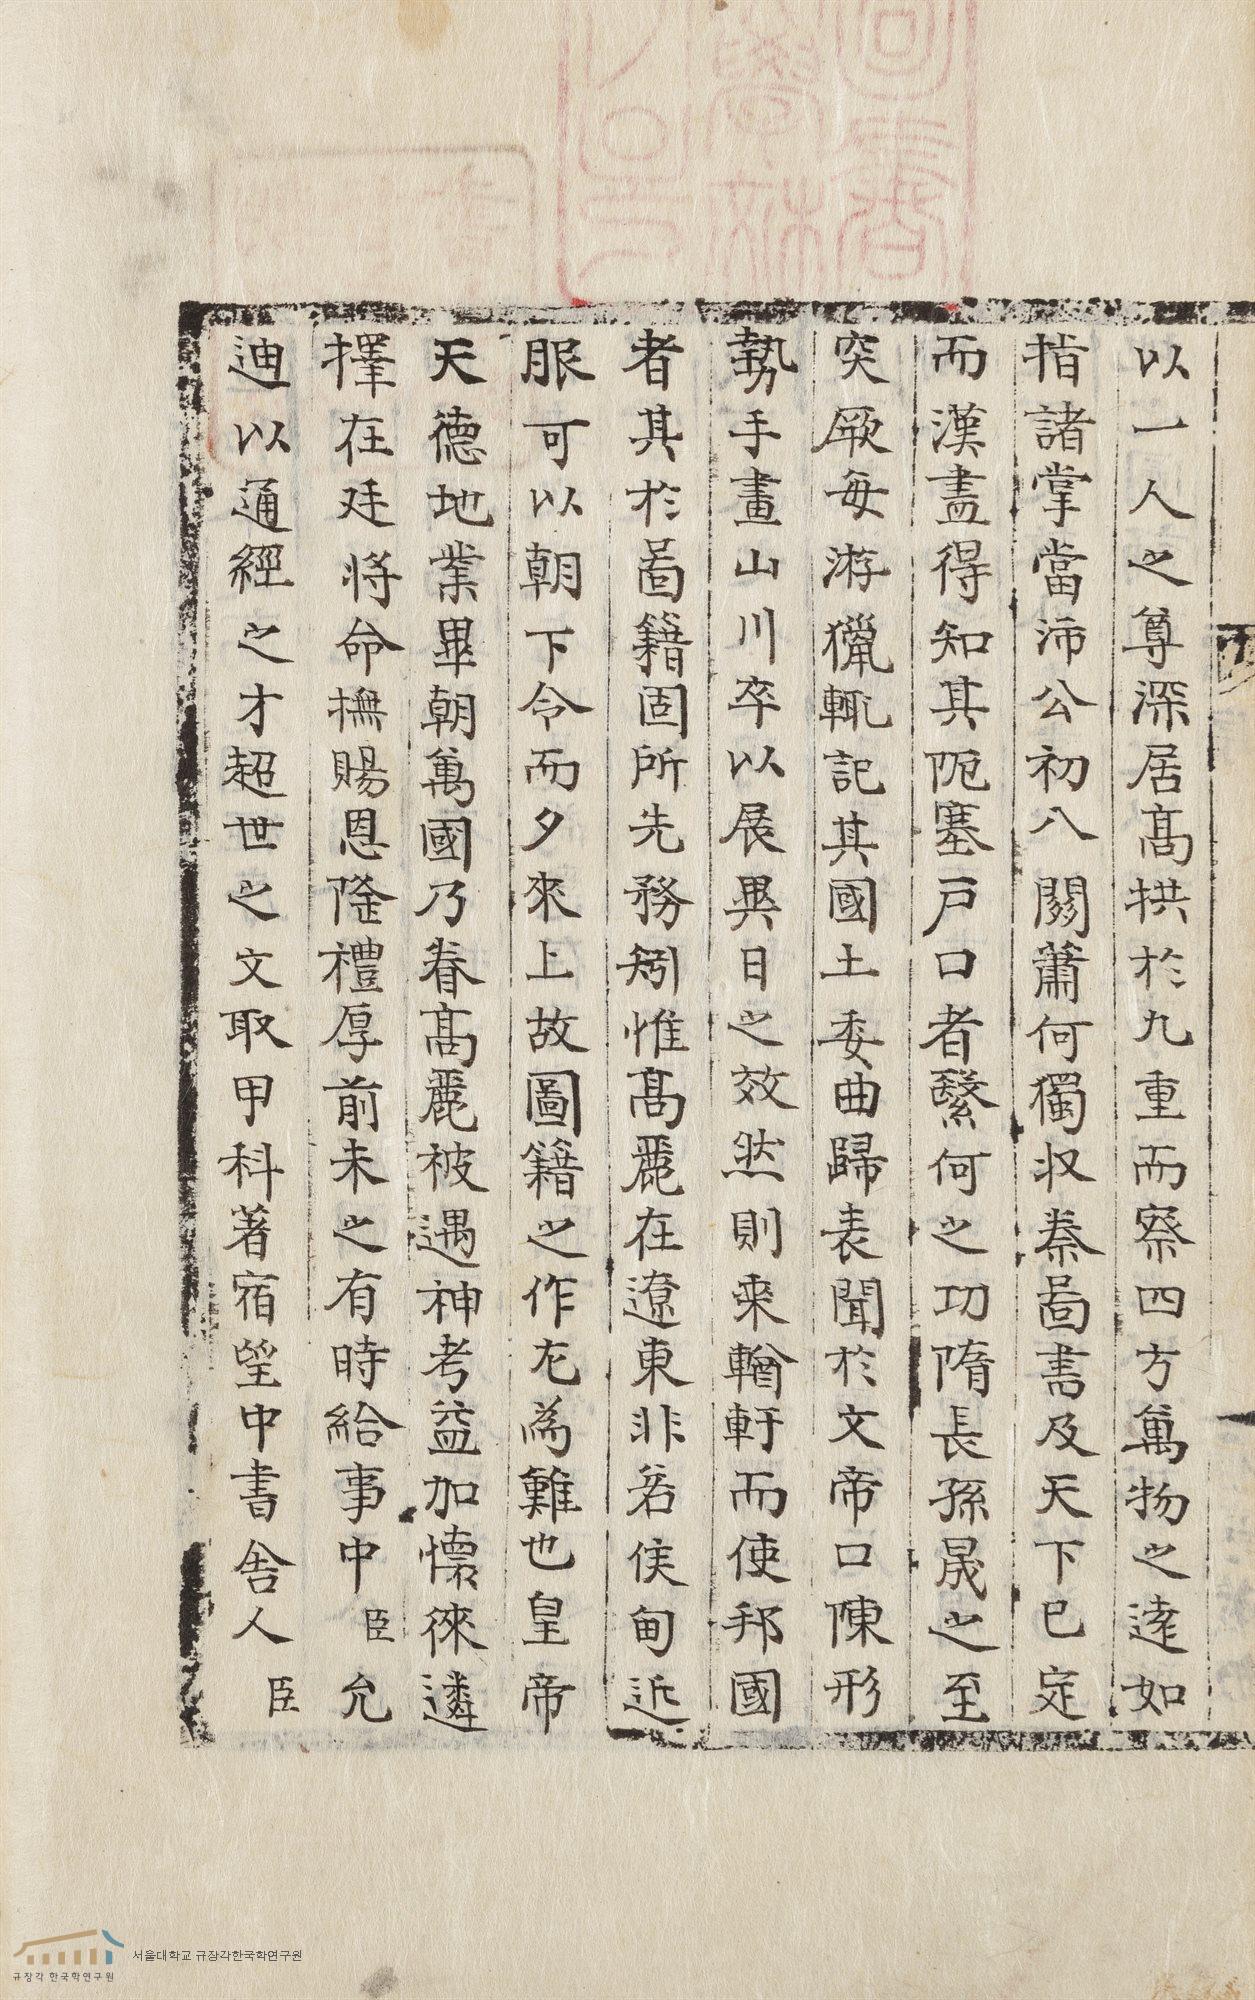 以一人之尊深居髙拱於九重而察四方萬物之逺如
指諸掌當沛公初入關蕭何獨收秦圖書及天下已定
而漢盡得知其阨塞戸口者繄何之功隋長孫晟之至
突厥每游獵輒記其國土委曲歸表聞於文帝口陳形
勢手畫山川卒以展異日之效然則乘輶軒而使邦國
者其於圖籍固所先務矧惟髙麗在遼東非若侯甸近
服可以朝下令而夕來上故圖籍之作尤爲難也皇帝
天德地業畢朝萬國乃眷髙麗被遇神考益加懷徠遴
擇在廷將命撫賜恩隆禮厚前未之有時給事中臣允
迪以通經之才超世之文取甲科著宿望中書舍人臣
서울대학교 규장각한국학연구원
규장각 한국학연구원